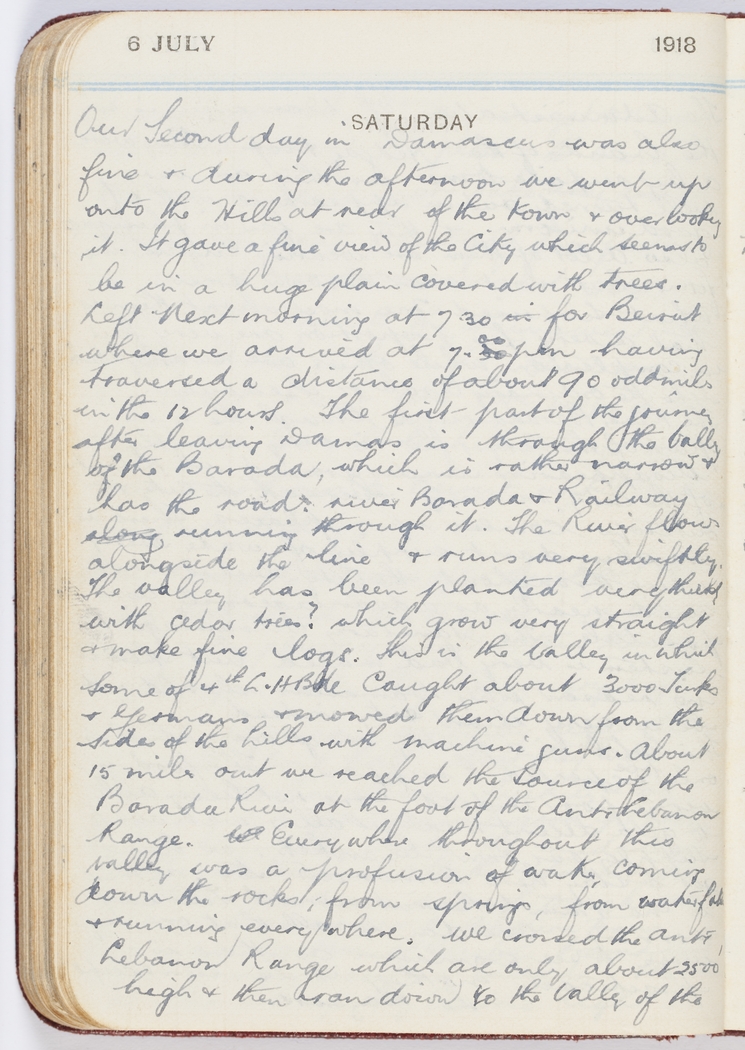 6 JULY 1918
SATURDAY
Our Second day in Damascus was also
fine & during the afternoon we went up
onto the Hills at rear of the town & overlookg
it. It gave a fine view of the City which seems to
be in a huge plain covered with trees.
Left Next morning at 7 30 for Beirut
where we arrived at 7. pm having
traversed a distance of about 90 odd mils
in the 12 hours. The first part of the journey
after leaving Damas is through the Valley
of the Barada, which is rather narrow &
has the road. river Barada & Railway
along running through it. The River flows
alongside the line & runs very swiftly.
The valley has been planted very thickly
with cedar trees? which grow very straight
& make fine logs. This is the Valley in which
some of 4th L.H Bde Caught about 3000 Turks
& Germans & mowed them down from the
sides of the hills with machine guns. About
15 mils out we reached the source of the
Barada River at the foot of the Anti Lebanon
Range. We Everywhere throughout this
valley was a profusion of water coming
down the rocks, from springs, from waterfalls
& running everywhere. We crossed the anti
Lebanon Range which are only about 2500
high & then ran down to the Valley of the